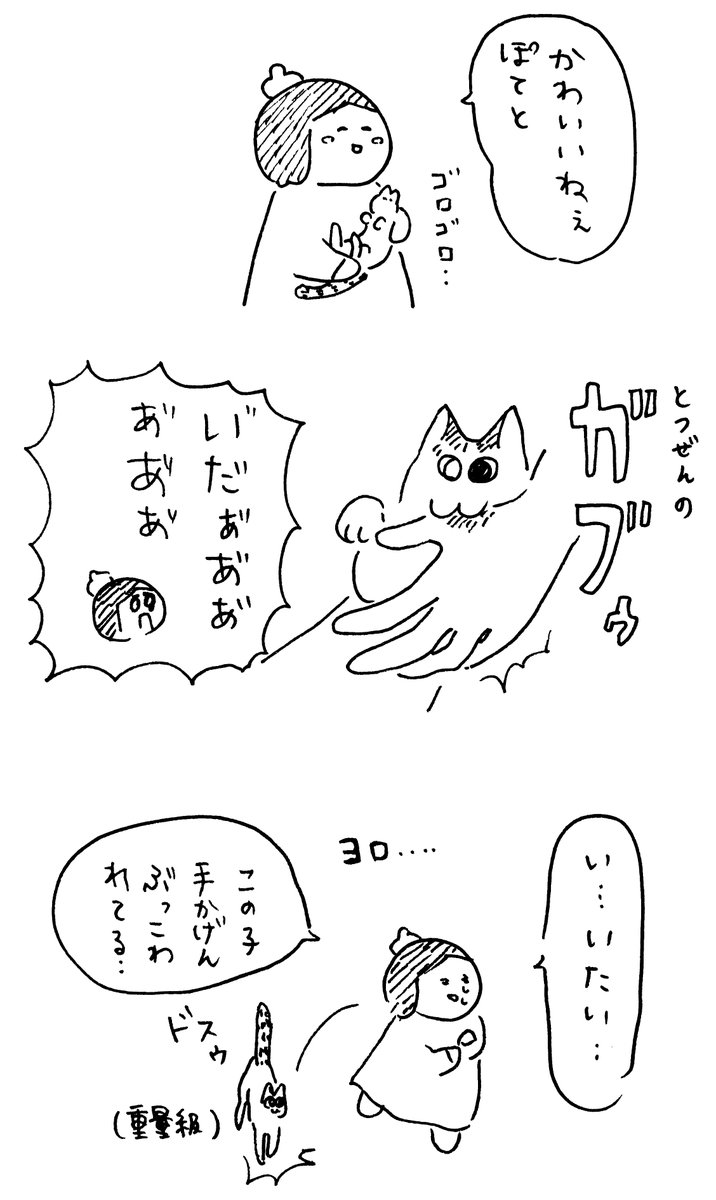 かわいいねぇ
ぽてと
ゴロゴロ‥
とつぜんの
ガブゥ
い゛だぁ゛あ゛あ゛
あ゛あ゛あ゛
い…いたい…
ヨロ‥‥
この子
手かげん
ぶっこわ
れてる…
ドスゥ
(重量級)